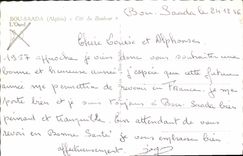 BOUSSAADA (Algérie) « Cité du Bonheur »
L'Oued
Bou Saada le 24.12.56
Chère Louise et Alphonse.
1957 approche je viens donc vous souhaiter une
bonne et heureuse année j'espère que cette future
année me permettra de revenir en France, je me
porte bien et je suis toujours à Bou Saada bien
pénard et tranquille. En attendant de vous
revoir en Bonne Santé je vous embrasse bien
affectueusement